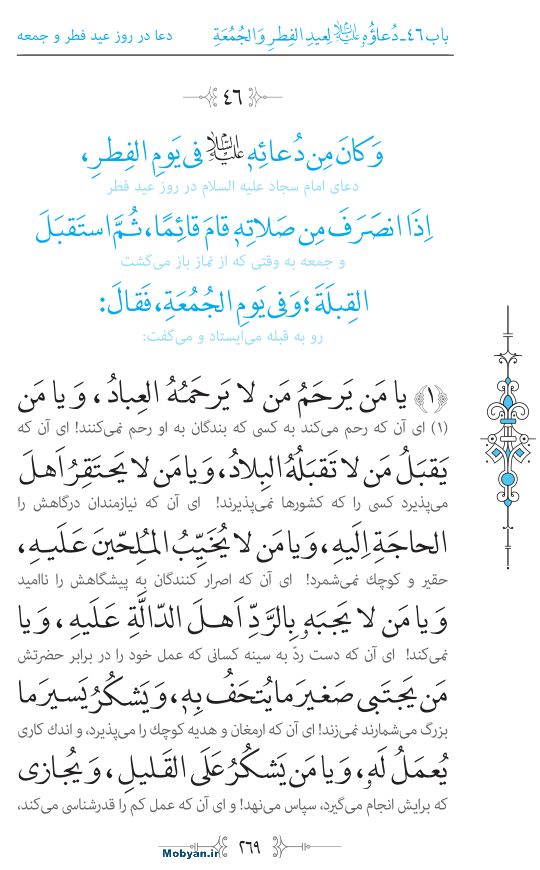 باب ٤٦-دُعاؤُهُ عليه السلام لِعيدِ الفِطرِ وَالجُمُعَةِ دعا در روز عید فطر و جمعه
٤٦
وَ كانَ مِن دُعائِهِ عليه السلام فی يَومِ الفِطرِ،
دعای امام سجاد علیه السلام در روز عید فطر
اِذَا انصَرَفَ مِن صَلاتِهِ قامَ قائِمًا، ثُمَّ استَقبَلَ
و جمعه به وقتی که از نماز باز می‌گشت
القِبلَةَ؛ وَ فی يَومِ الجُمُعَةِ، فَقالَ:
رو به قبله می‌ایستاد و می‌گفت:
﴿١﴾ يا مَن يَرحَمُ مَن لا يَرحَمُهُ العِبادُ، وَ يا مَن
(۱) ای آن که رحم می‌کند به کسی که بندگان به او رحم نمی‌کنند! ای آن که
يَقبَلُ مَن لا تَقبَلُهُ البِلادُ، وَ يا مَن لا يَحتَقِرُ اَهلَ
می‌پذیرد کسی را که کشورها نمی‌پذیرند! ای آن که نیازمندان درگاهش را
الحاجَةِ اِلَيهِ، وَ يا مَن لا يُخَيِّبُ المُلِحّينَ عَلَيهِ،
حقیر و کوچك نمی‌شمرد! ای آن که اصرار کنندگان به پیشگاهش را ناامید
وَ يا مَن لا يَجبَهُ بِالرَّدِّ اَهلَ الدّالَّةِ عَلَيهِ، وَ يا
نمی‌کند! ای آن که دست ردّ به سینه کسانی که عمل خود را در برابر حضرتش
مَن يَجتَبی صَغيرَ ما يُتحَفُ بِهِ، وَ يَشكُرُ يَسيرَ ما
بزرگ می‌شمارند نمی‌زند! ای آن که ارمغان و هدیه کوچك را می‌پذیرد، و اندك کاری
يُعمَلُ لَهُ، وَ يا مَن يَشكُرُ عَلَی القَليلِ، وَ يُجازی
که برایش انجام می‌گیرد، سپاس می‌نهد! و ای آن که عمل کم را قدرشناسی می‌کند،
٢٦٩
Mobyan.ir